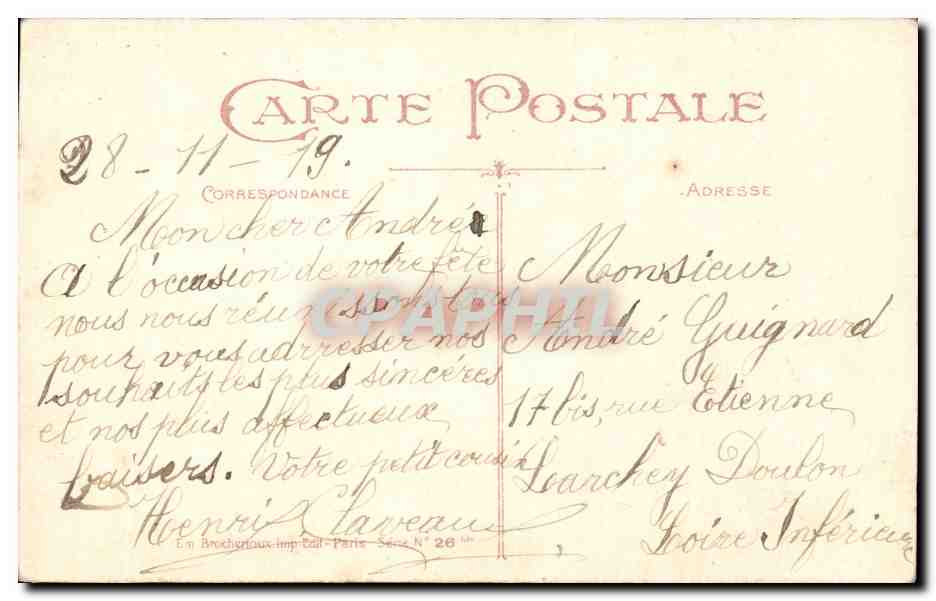 CARTE POSTALE
28 - 11 - 19.
CORRESPONDANCE
Mon cher André
A l'occasion de votre fête
nous nous réunissons tous
pour vous adrresser nos
souhaits les plus sincères
et nos plus affectueux
baisers. Votre petit cousin
Henri Claveau
ADRESSE
Monsieur
André Guignard
17 bis, rue Etienne
Larchey Doulon
Loire Inférieure
CPAPHIL
Em Brocherioux Imp-Edit - Paris Série N° 26 bis